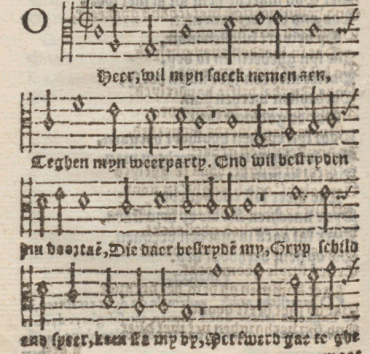 O
Heer, wil myn saeck nemen aen,
Teghen myn weerparty. End wil bestryden
nu voortaē, Die daer bestrydē my, Gryp schild
end speer, kom sta my by, Met swerd gae te ghe